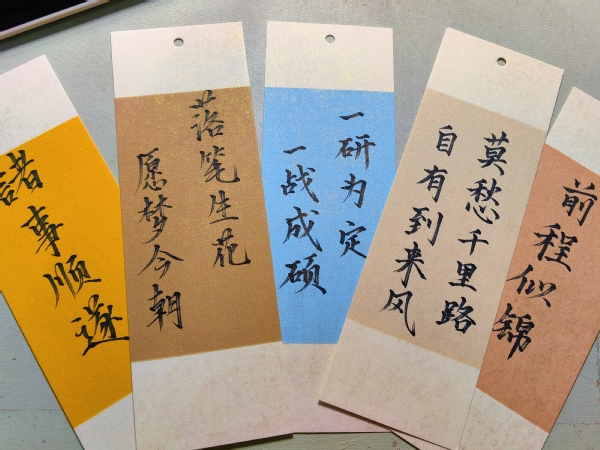 諸事顺遂
落笔生花
愿梦今朝
一研为定
一战成硕
莫愁千里路
自有到来风
前程似锦